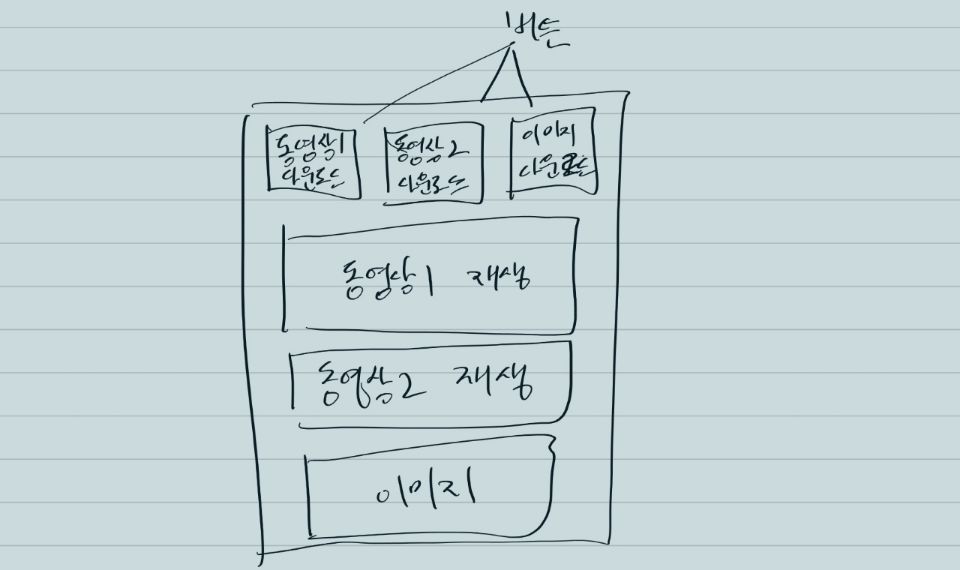 버튼
동영상1
다운로드
동영상2
다운로드
이미지
다운로드
동영상1 재생
동영상2 재생
이미지